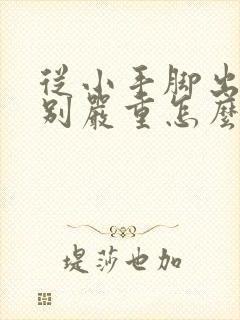 從小手脚出
别嚴重怎麼
堤莎也加